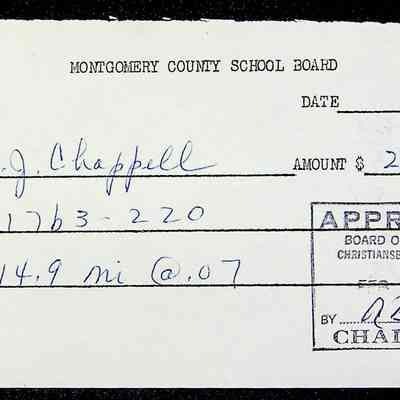 MONTGOMERY COUNTY SCHOOL BOARD
DATE
.J. Chappell AMOUNT $ 2
17b3-220
14.9 mi @.07
APPR
BOARD O
CHRISTIANSB
FEB
BY
CHAI